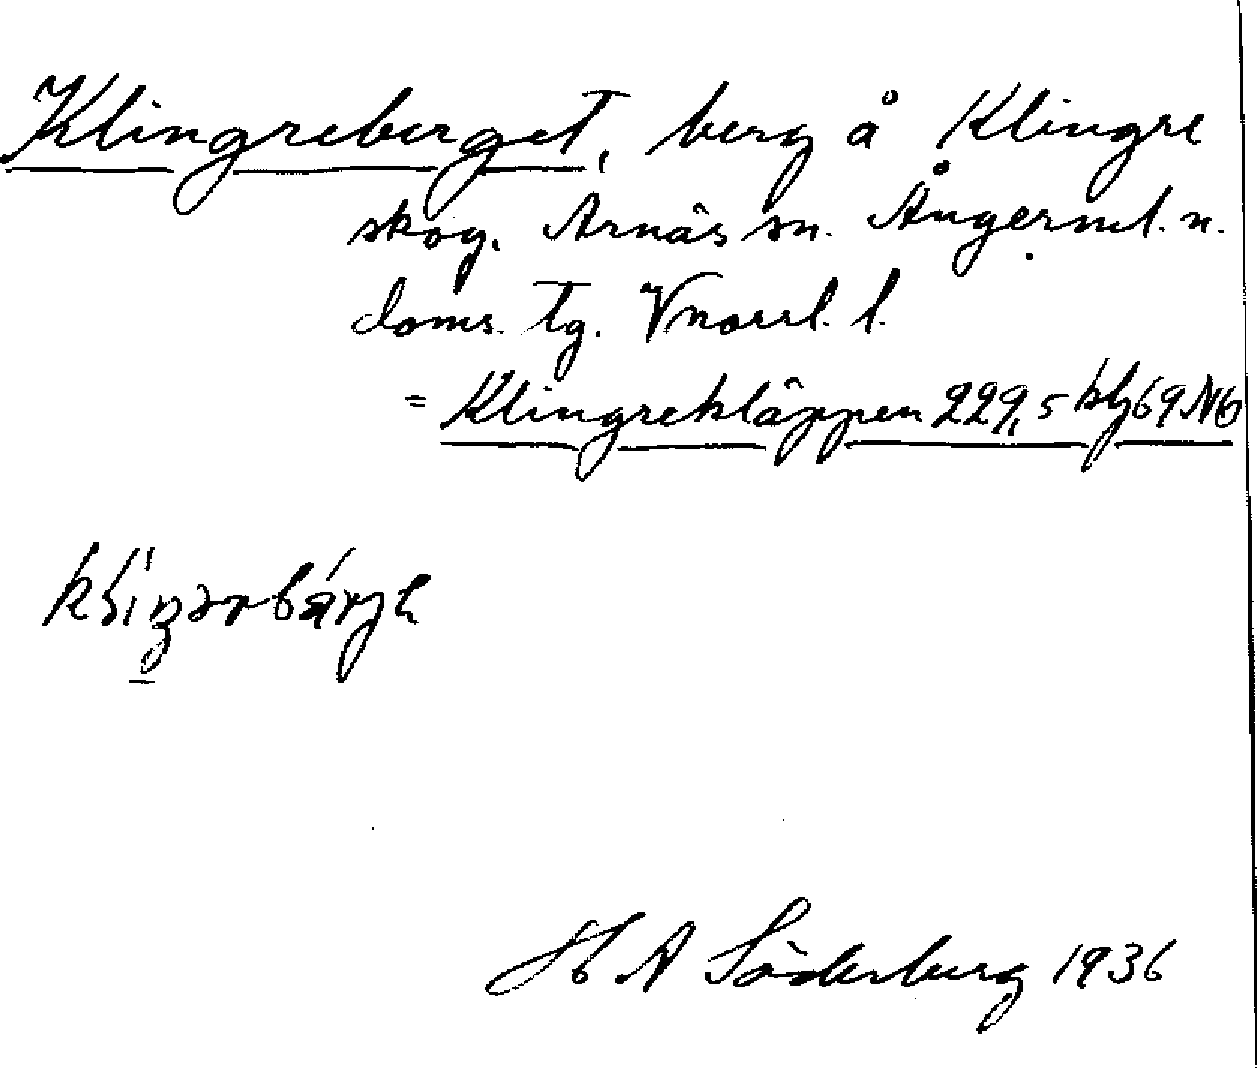 Klingreberget, berg å Klingre
skog. Arnäs sn. Ångerml. n.
doms. tg. Vnorrl. l.
= Klingrekläppen 229,5 kbl 69 NO
H A Söderberg 1936